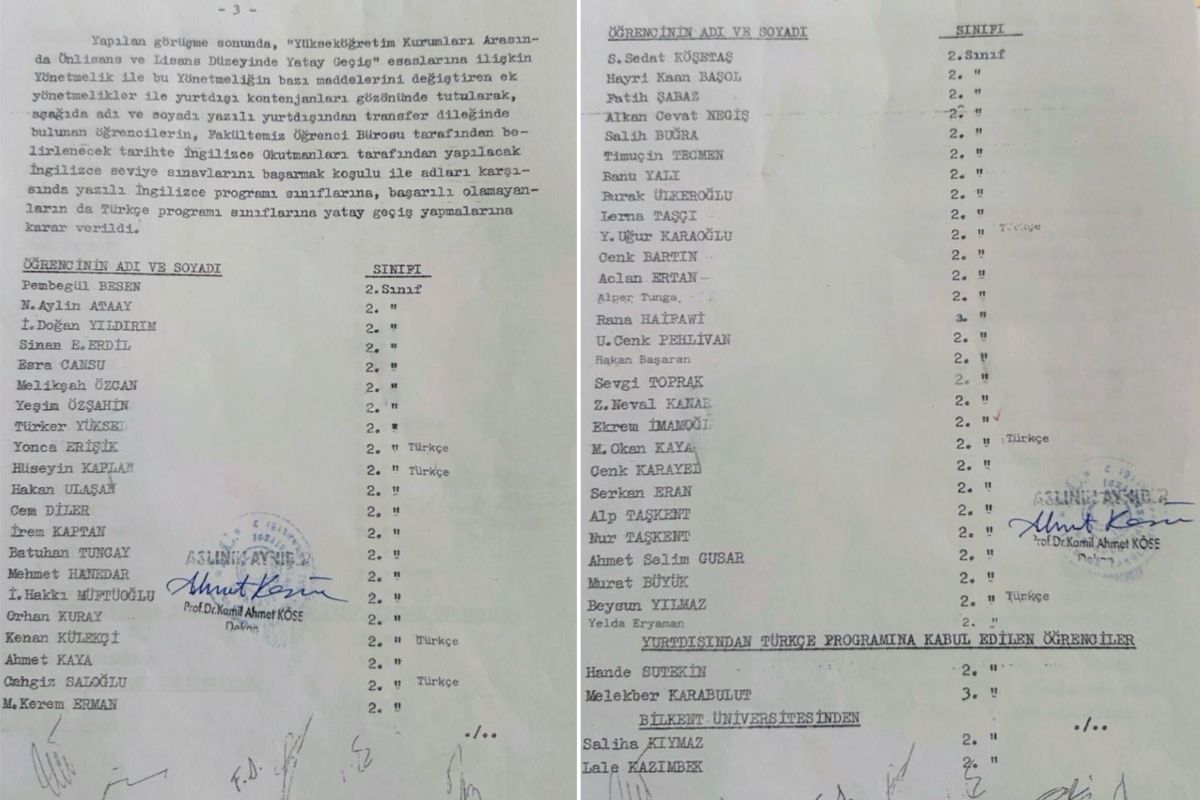 - 3 -
Yapılan görüşme sonunda, "Yükseköğretim Kurumları Arasın-
da Önlisans ve Lisans Düzeyinde Yatay Geçiş" esaslarına ilişkin
Yönetmelik ile bu Yönetmeliğin bazı maddelerini değiştiren ek
yönetmelikler ile yurtdışı kontenjanları gözönünde tutularak,
aşağıda adı ve soyadı yazılı yurtdışından transfer dileğinde
bulunan öğrencilerin, Fakültemiz Öğrenci Bürosu tarafından be-
lirlenecek tarihte İngilizce Okutmanları tarafından yapılacak
İngilizce seviye sınavlarını başarmak koşulu ile adları karşı-
sında yazılı İngilizce programı sınıflarına, başarılı olamayan-
ların da Türkçe programı sınıflarına yatay geçiş yapmalarına
karar verildi.
ÖĞRENCİNİN ADI VE SOYADI SINIFI
Pembegül BESEN 2.Sınıf
N.Aylin ATAAY 2. "
İ.Doğan YILDIRIM 2. "
Sinan E.ERDİL 2. "
Esra CANSU 2. "
Melikşah ÖZCAN 2. "
Yeşim ÖZŞAHİN 2. "
Türker YÜKSEL 2. "
Yonca ERİŞİK 2. " Türkçe
Hüseyin KAPLAN 2. " Türkçe
Hakan ULAŞAN 2. "
Cem DİLER 2. "
İrem KAPTAN 2. "
Batuhan TUNCAY 2. "
Mehmet HANEDAR 2. "
İ.Hakkı MÜFTÜOĞLU 2. "
Orhan KURAY 2. "
Kenan KÜLEKÇİ 2. " Türkçe
Ahmet KAYA 2. "
Cengiz SALOĞLU 2. " Türkçe
M.Kerem ERMAN 2. "
ASLININ AYNIDIR
Prof.Dr.Kamil Ahmet KÖSE
Dekan
./..
F.D.
ÖĞRENCİNİN ADI VE SOYADI SINIFI
S.Sedat KÖŞETAŞ 2.Sınıf
Hayri Kaan BAŞOL 2. "
Fatih ŞABAZ 2. "
Alkan Cevat NEGİŞ 2. "
Salih BUĞRA 2. "
Timuçin TECMEN 2. "
Banu YALI 2. "
Burak ÜLKEROĞLU 2. "
Lerna TAŞÇI 2. "
Y.Uğur KARAOĞLU 2. " Türkçe
Cenk BARTIN 2. "
Aclan ERTAN 2. "
Alper Tunga 2. "
Rana HAİFAWİ 3. "
U.Cenk PEHLİVAN 2. "
Hakan Başaran 2. "
Sevgi TOPRAK 2. "
Z.Neval KANAR 2. "
Ekrem İMAMOĞL 2. "
M.Okan KAYA 2. " Türkçe
Cenk KARAYEL 2. "
Serkan ERAN 2. "
Alp TAŞKENT 2. "
Nur TAŞKENT 2. "
Ahmet Selim GUSAR 2. "
Murat BÜYÜK 2. "
Beysun YILMAZ 2. " Türkçe
Yelda Eryaman 2. "
ASLININ AYNIDIR
Prof.Dr.Kamil Ahmet KÖSE
Dekan
YURTDIŞINDAN TÜRKÇE PROGRAMINA KABUL EDİLEN ÖĞRENCİLER
Hande SUTEKİN 2. "
Melekber KARABULUT 3. "
BİLKENT ÜNİVERSİTESİNDEN ./..
Saliha KIYMAZ 2. "
Lale KAZIMBEK 2. "